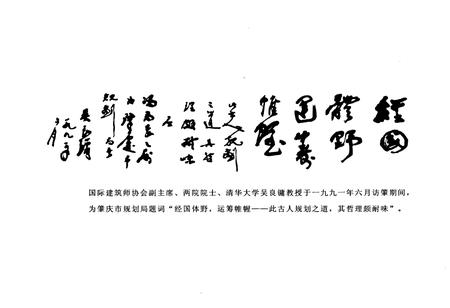 經国
體野
運籌
帷幄
此古人规划
之道其哲
理颇耐味
吴良镛
一九九一年
六月
国际建筑师协会副主席、两院院士、清华大学吴良镛教授于一九九一年六月访肇期间，
为肇庆市规划局题词“经国体野，运筹帷幄——此古人规划之道，其哲理颇耐味”。